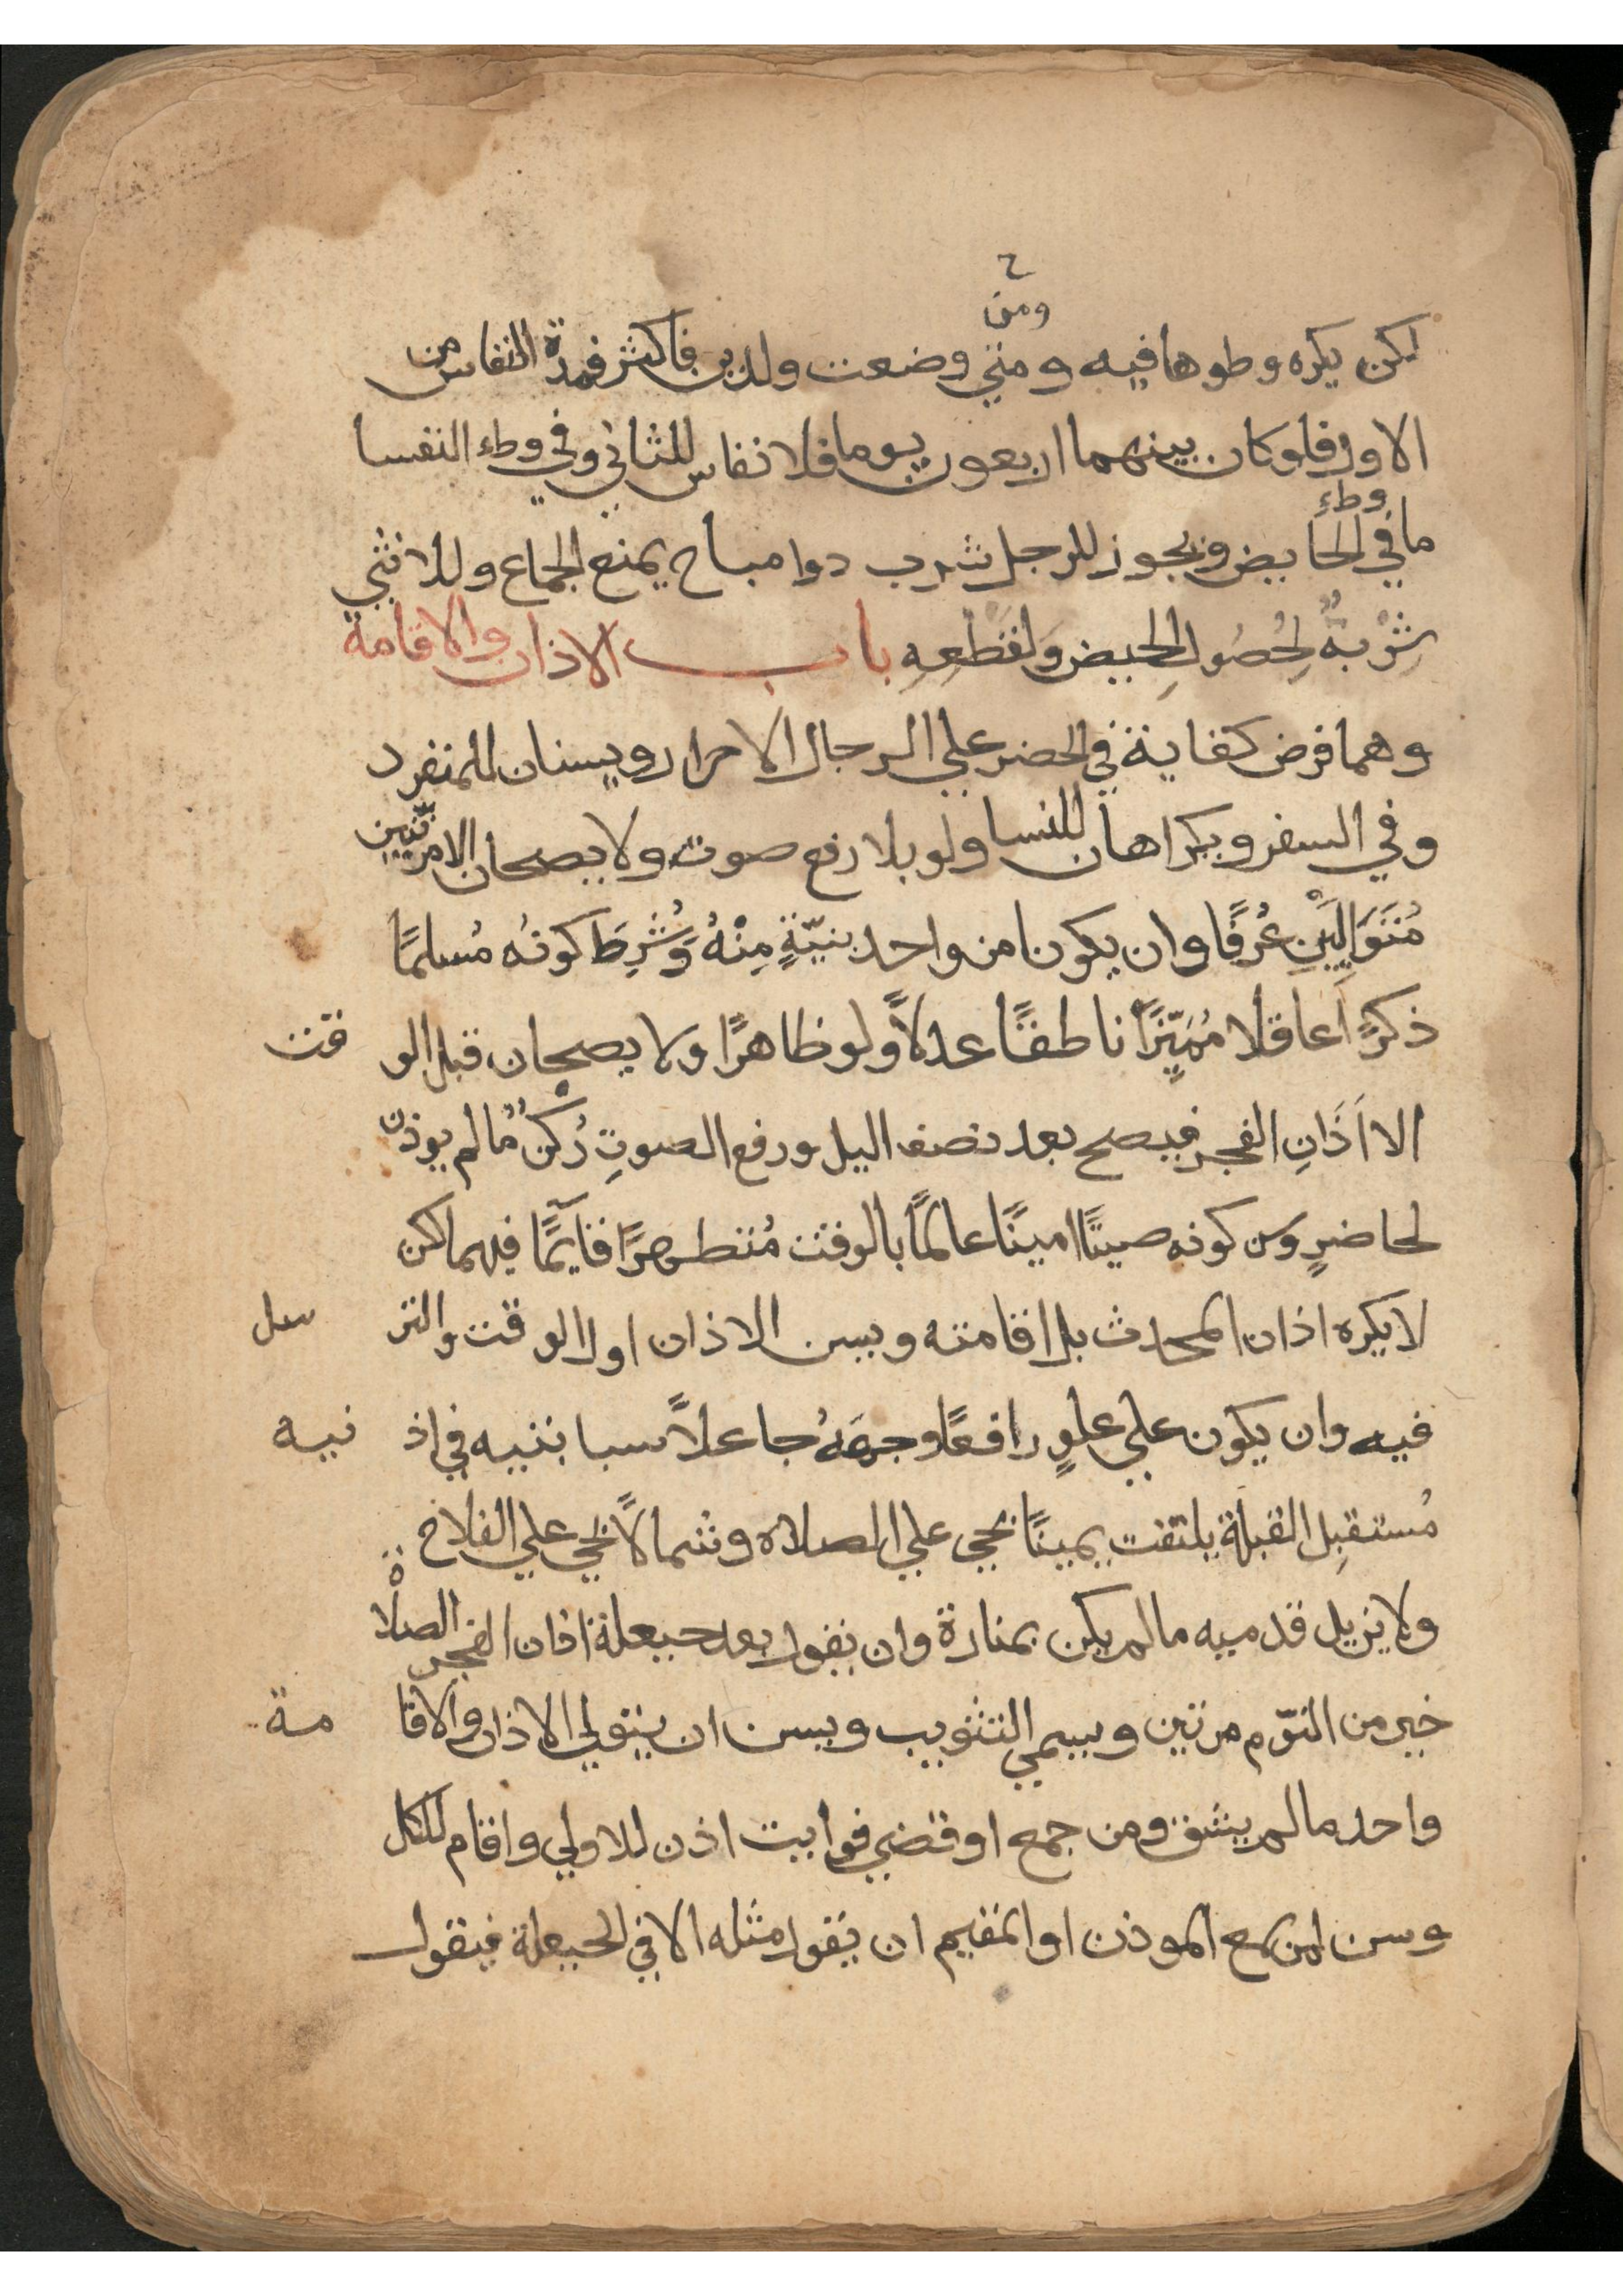 ح
ومن
لكن يكره وطوها فيه ومتي وضعت ولدين فاكثر فمدة النفاس من
الاول فلو كان بينهما اربعون يوما فلا نفاس للثاني وفي وطء النفسا
ما في وطء الحايض ويجوز للرجل شرب دوا مباح يمنع الجماع وللانثي
شربهُ لِحُصُولِ الحيض ولقطعِهِ باب الاذان والاقامة
وهما فرض كفاية في الحضر علي الرجال الاحرار ويسنان للمنفرد
وفي السفر ويكراهان للنسا ولو بلا رفع صوت ولا يصحان الا مرتّبين
مُتَوَالِيَيْنِ عُرفًا وان يكونا من واحد بنيّةٍ مِنْهُ وَشُرِطَ كونُه مُسلمًا
ذكرًا عاقلا مُمَيِّزًا ناطقًا عدلاً ولو ظاهرًا ولا يصحان قبل الوقت
الا اَذَانِ الفجر فيصح بعد نصف اليل ورفع الصوتِ رُكنٌ ما لم يوذن
لحاضرٍ وسن كونه صيتًا امينًا عالمًا بالوقت مُتطهرًا قآيمًا فيهما لكن
لا يكره اذان المحدث بل اقامته ويسن الاذان اول الوقت والترسل
فيه وان يكون علي علوٍ رافعًا وجهَهُ جاعلاً سبابتيه في اذنيه
مُستقبِل القبلة يلتفت يمينًا لحي علي الصلاه وشمالاً لحي علي الفلاح
ولا يزيل قدميه ما لم يكن بمنارة وان يقول بعد حيعلة اذان الفجر الصلاة
خير من النوّم مرتين ويسمي التثويب ويسن ان يتولي الاذان والاقامة
واحد ما لم يشق ومن جمع او قضي فوايت اذن للاولي واقام للكل
وسن لمن سمع الموذن او المقيم ان يقول مثله الا في الحيعلة فيقول